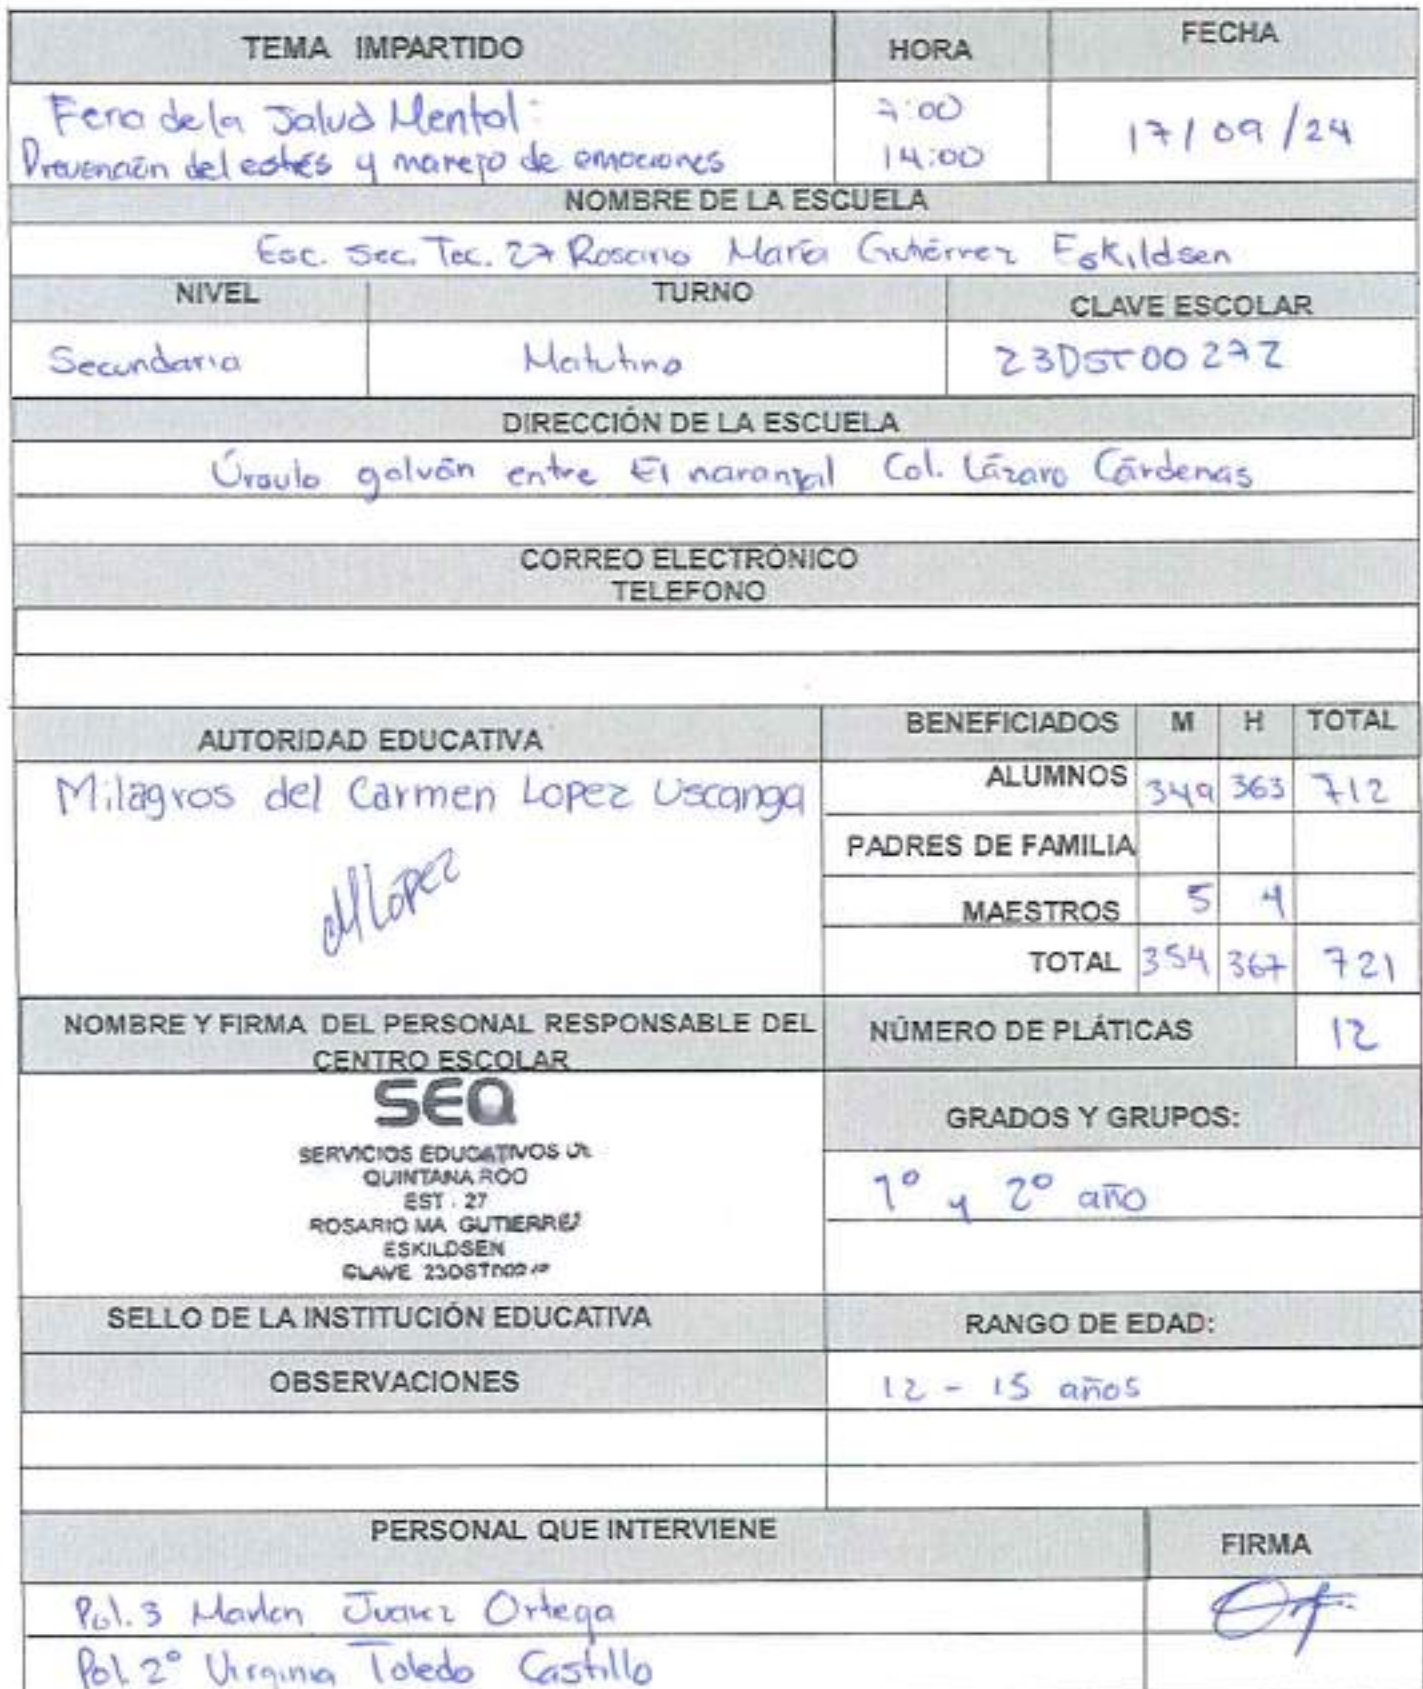 TEMA IMPARTIDO HORA FECHA
Feria de la Salud Mental: 7:00
17/09/24
Prevención del estrés y manejo de emociones 14:00
NOMBRE DE LA ESCUELA
Esc. Sec. Tec. 27 Rosario María Gutiérrez Eskildsen
NIVEL TURNO CLAVE ESCOLAR
Secundaria Matutino 23DST0027Z
DIRECCIÓN DE LA ESCUELA
Úrsulo galván entre El naranjal Col. Lázaro Cárdenas
CORREO ELECTRÓNICO
TELEFONO
AUTORIDAD EDUCATIVA BENEFICIADOS M H TOTAL
Milagros del Carmen Lopez Uscanga
ALUMNOS 349 363 712
PADRES DE FAMILIA
MLópez
MAESTROS 5 4
TOTAL 354 367 721
NOMBRE Y FIRMA DEL PERSONAL RESPONSABLE DEL
CENTRO ESCOLAR
NÚMERO DE PLÁTICAS 12
SEQ
SERVICIOS EDUCATIVOS DE
QUINTANA ROO
EST - 27
ROSARIO MA GUTIERREZ
ESKILDSEN
CLAVE
GRADOS Y GRUPOS:
1° y 2° año
SELLO DE LA INSTITUCIÓN EDUCATIVA RANGO DE EDAD:
OBSERVACIONES 12 - 15 años
PERSONAL QUE INTERVIENE FIRMA
Pol. 3 Marlen Juarez Ortega
Pol. 2° Virginia Toledo Castillo